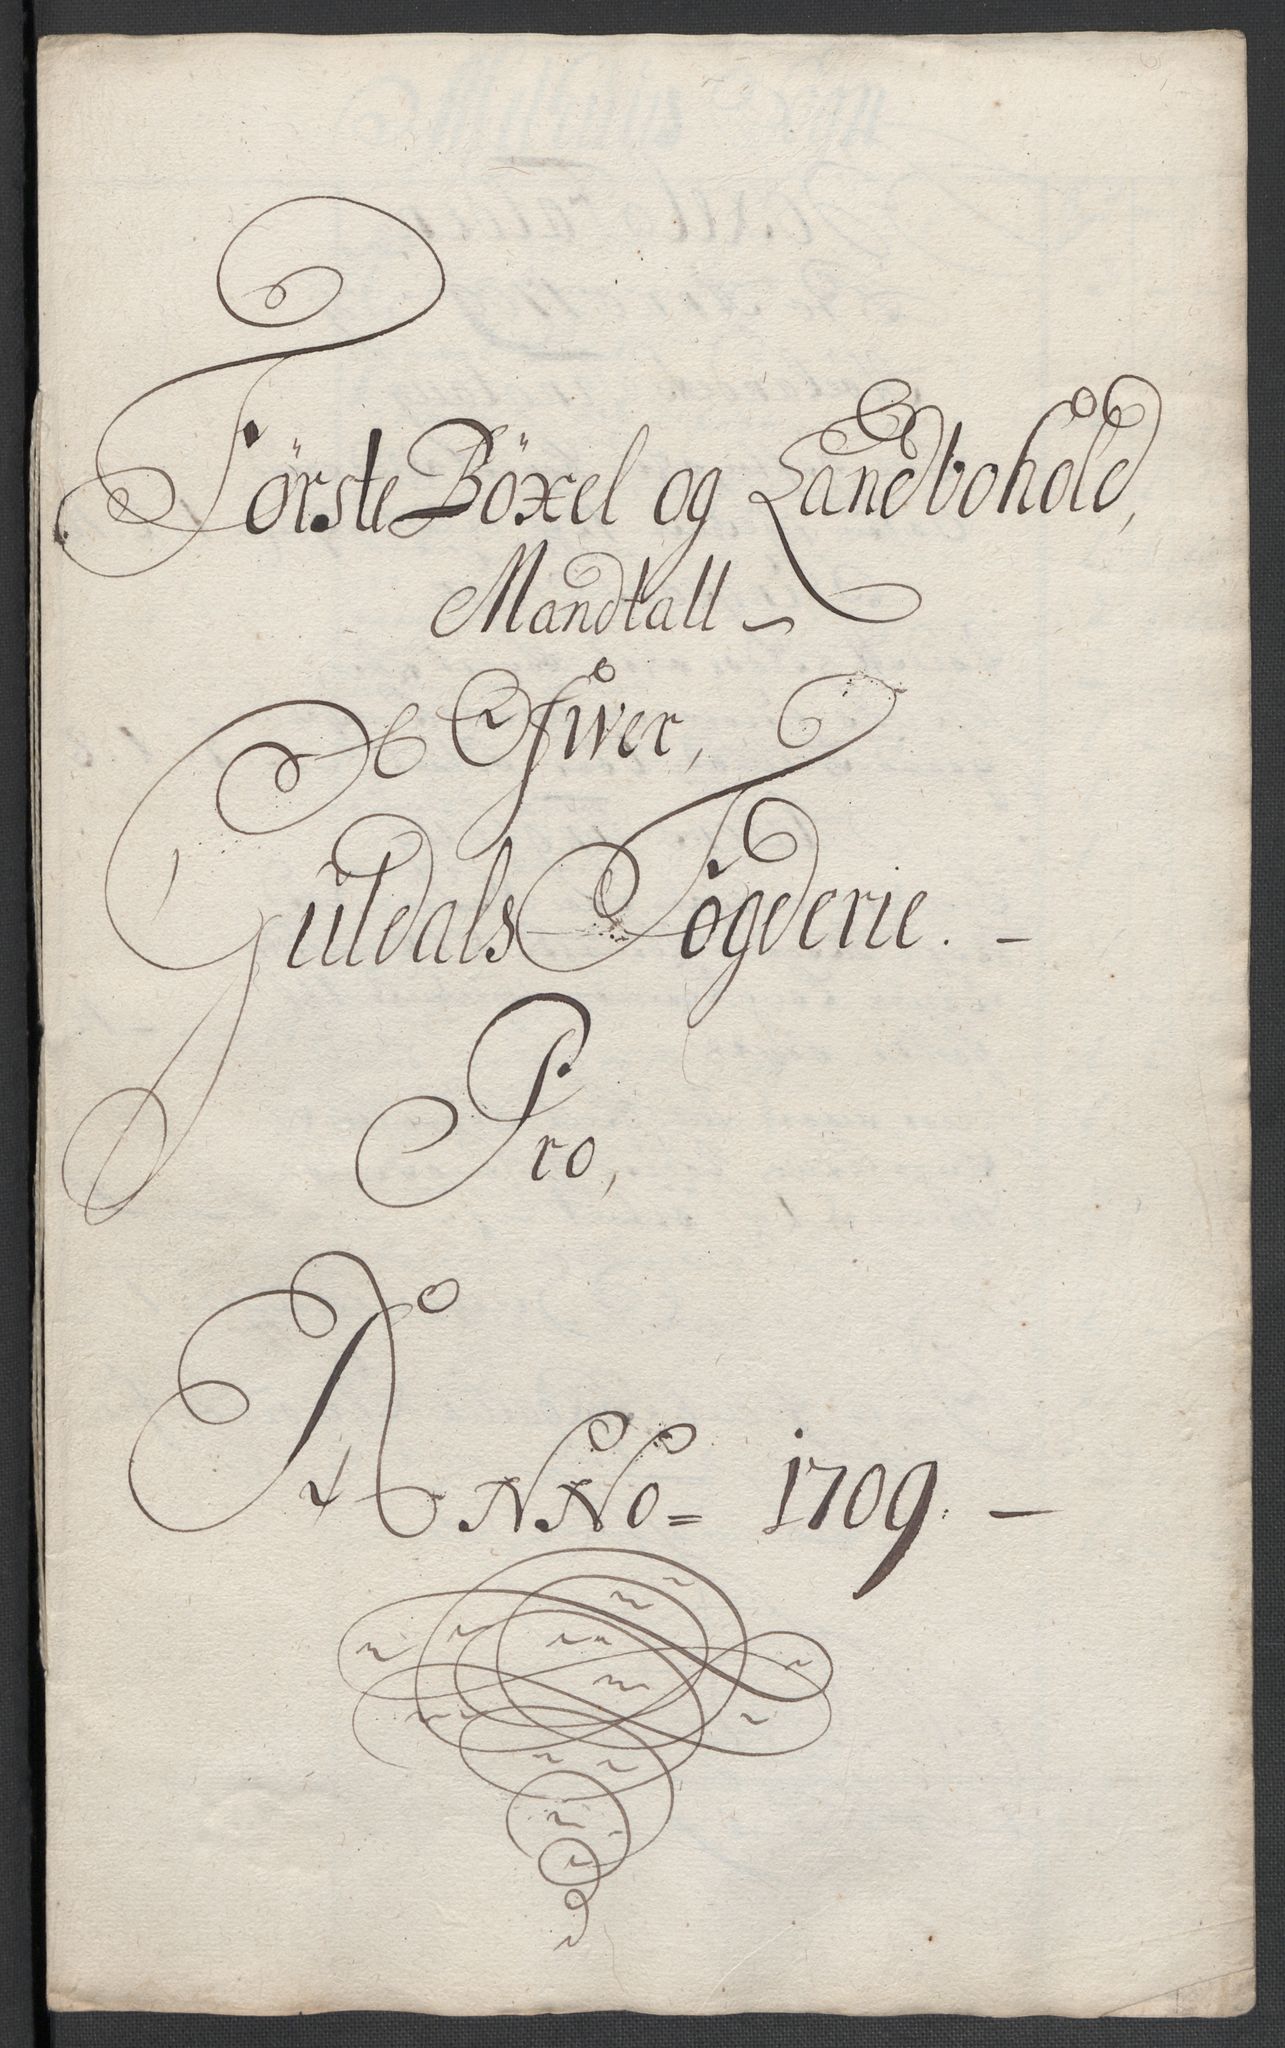 Første Böxel og Landbohold,
Mandtall –
Ofwer,
Guldals Fogderie. –
Pro,
ANNo = 1709. –